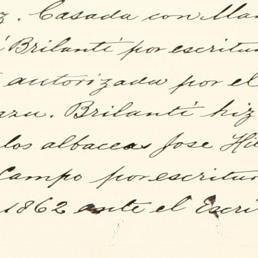 z. Casada con Man
i Brilanti por escritu
autorizada por el
azu. Brilanti hiz
los albaceas Jose Hil
Campo por escritur
1862 ante el Escri